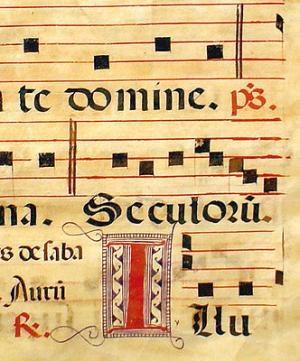 te domine. ps.
na. Seculorũ.
s de saba
Aurũ
R. Illu